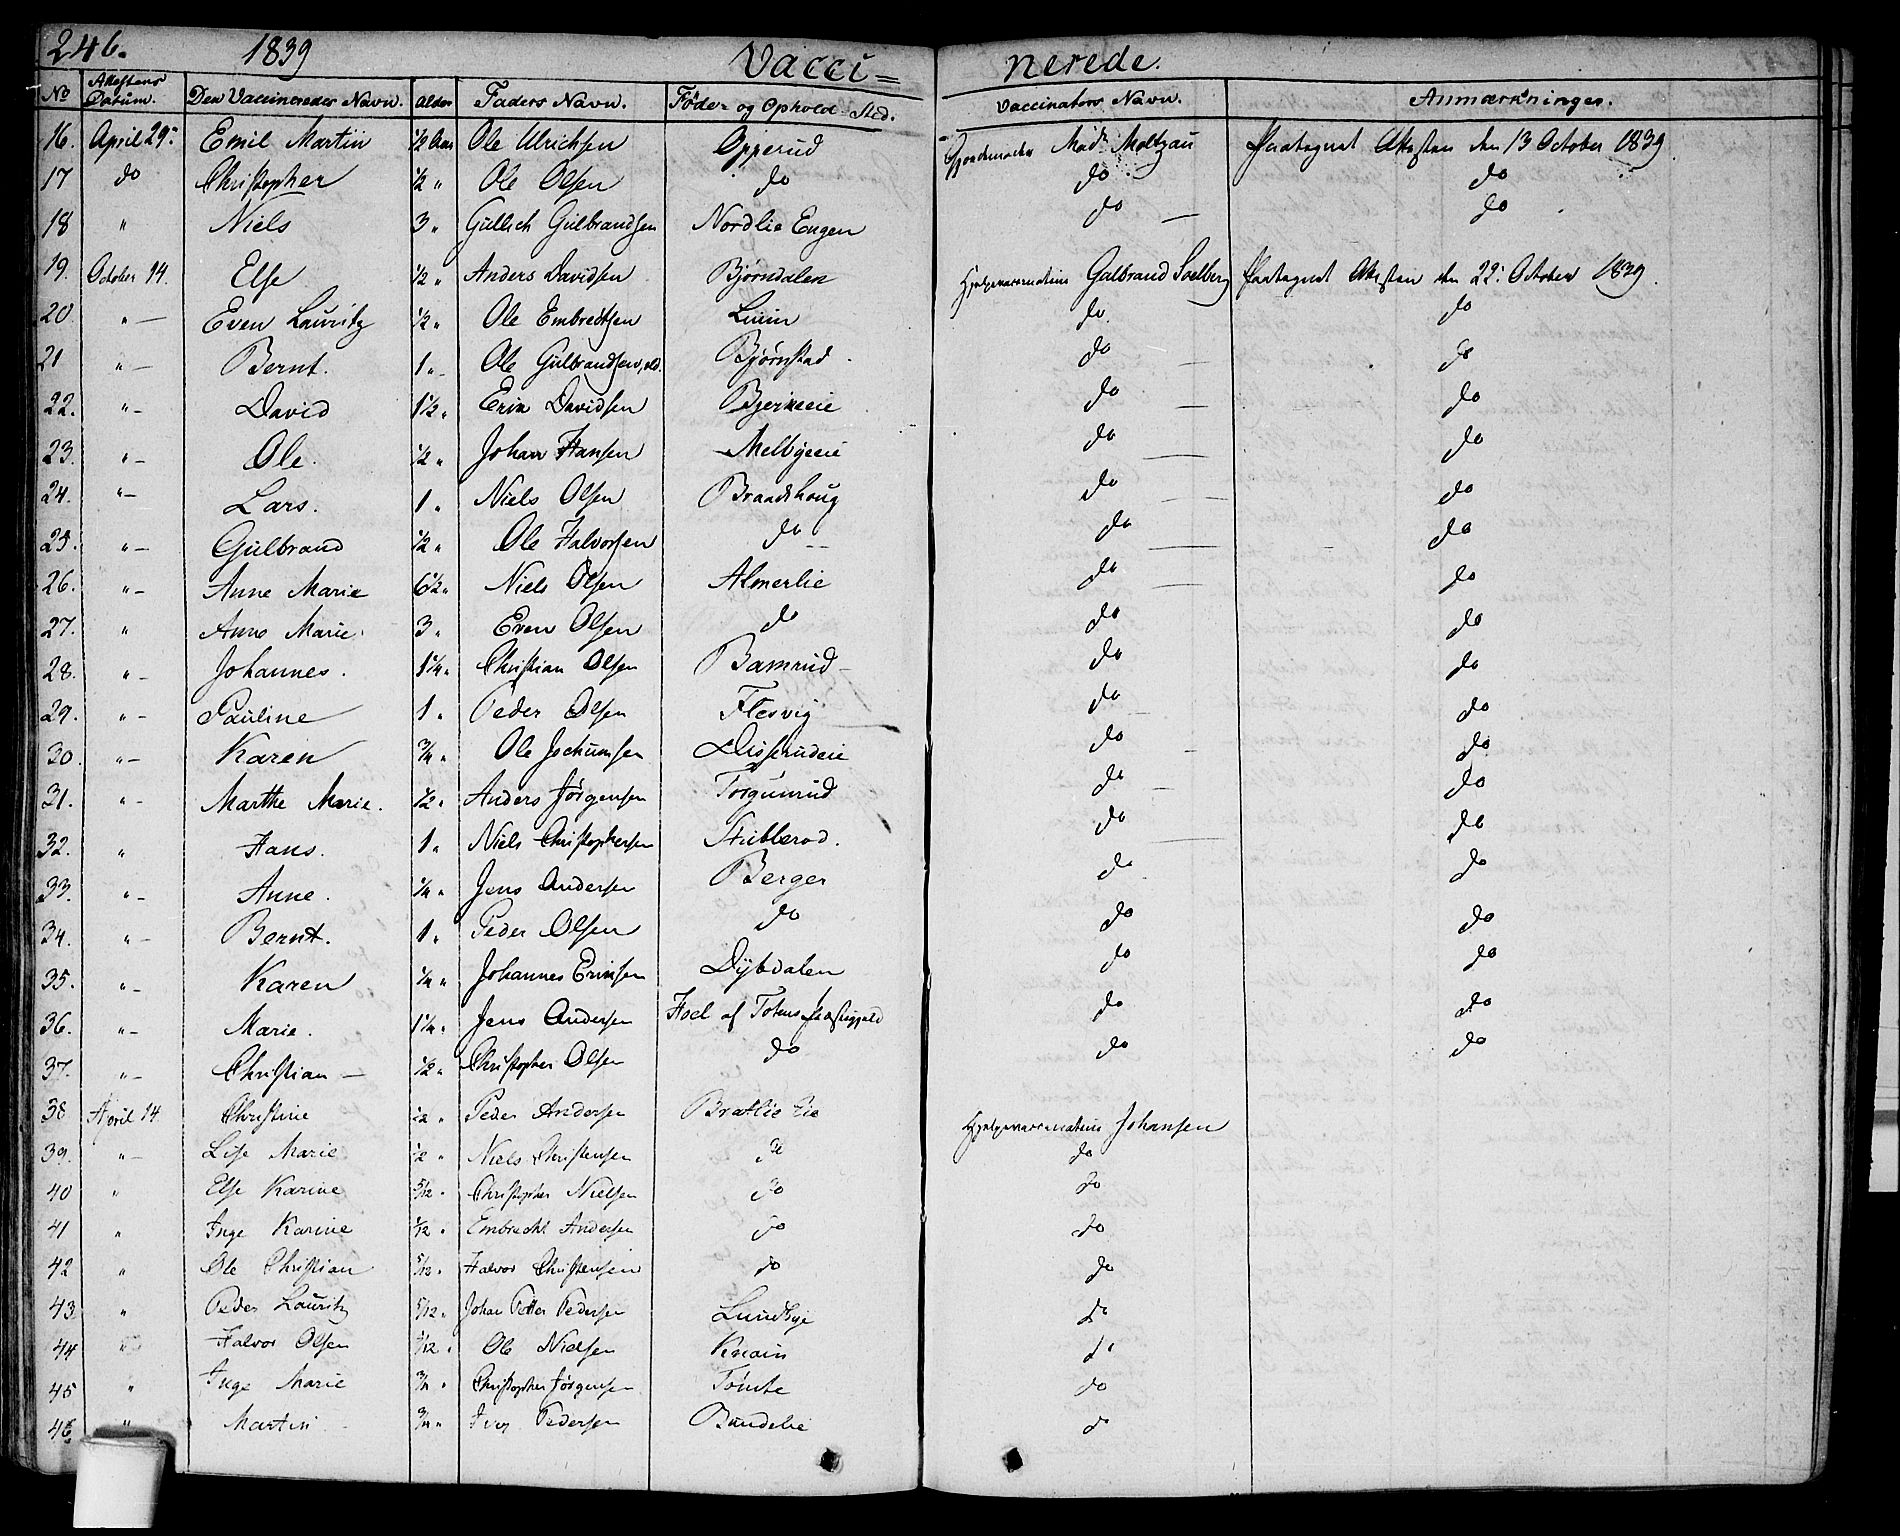 246. 1839 Vacci= nerede.
No Attestens Datum. Den Vaccineredes Navn. Alder Faders Navn. Føde= og Ophold=Sted. Vaccinators Navn. Anmærkninger.
16. April 29: Emil Martin 1/2 Aar Ole Ulrichsen Opperud Gjordemoder Mad: Moltzau Paategnet Attesten den 13 October 1839.
17 do Christopher 1/2 " Ole Olsen do do do
18 " Niels 3 " Gullich Gulbrandsen Nordlie Engen do — do
19. October 14. Else 1/2 " Anders Davidsen Bjørndalen Hjelpevaccinateur Gulbrand Solberg Paategnet Attesten den 22: October 1839.
20 " — Even Lauritz 1/2 " Ole Embretsen Linin do do
21 " — Bernt. 1 " Ole Gulbrandsen, Bjørnstad do — do
22. " — David 1 1/2 " Erik Davidsen Bjerkeeie do — do
23. " — Ole. 1/2 " Johan Hansen Melbyeeie do — do
24. " — Lars. 1 " Niels Olsen Brandshoug do — do
25. " — Gulbrand 1/2 " Ole Halvorsen do do — do
26. " — Anne Marie 6 1/2 " Niels Olsen Almerlie do — do
27. " Anne Marie 3 " Even Olsen do do do
28. " — Johannes. 1 1/4 " Christian Olsen Bamrud do do
29. " — Pauline 1 " Peder Olsen Flesvig do — do
30. " — Karen 3/4 " Ole Jochumsen Disserudeie do — do
31. " — Marthe Marie. 1/2 " Anders Jørgensen Torgunrud do — do
32. " Hans. 1 " Niels Christophersen Stublerod. do — do
33. " — Anne. 1/4 " Jens Andersen Berger do do
34. " — Bernt. 1 " Peder Olsen do do do
35. " — Karen 1/4 " Johannes Eriksen Dybdalen do do
36. " — Marie. 1 1/4 " Jens Andersen Hoel af Totens Præstegjeld do do
37. " — Christian — 1/2 " Christopher Olsen do do do
38 April 14. Christine 1/2 " Peder Andersen Bratlie Eie Hjelpevaccinateur Johansen
39. " — Lise Marie 1/2 " Niels Christensen do do
40 " Else Karine 5/12 " Christopher Nielsen do do
41 " Inge Karine /12 " Embrecht Andersen do do
42 " Ole Christian 5/12 " Halvor Christensen do do
43 " Peder Lauritz 5/12 " Johan Petter Pedersen Lundbye do
44 " Halvor Olsen /12 " Ole Nielsen do
45 " Inge Marie 3/4 " Christopher Jørgensen Tømte do
46 " Martin 3/4 " Iver Pedersen Bundelie do